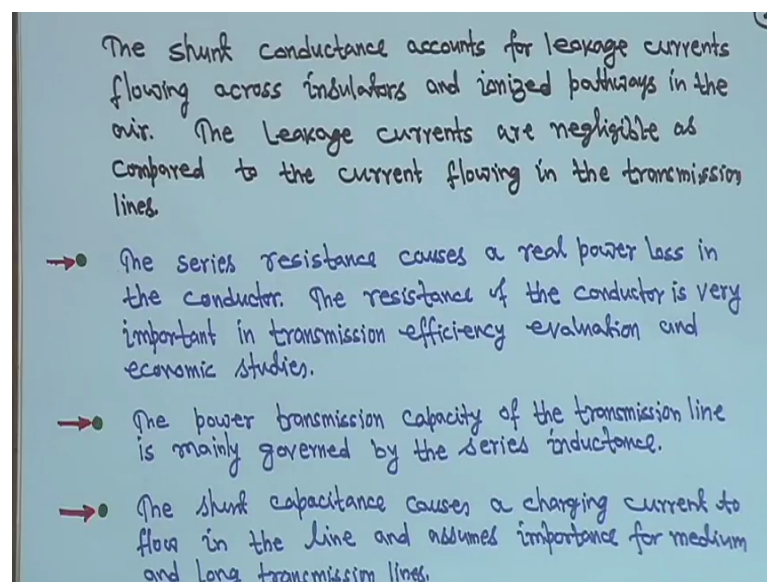 The shunt conductance accounts for leakage currents
flowing across insulators and ionized pathways in the
air. The Leakage currents are negligible as
compared to the current flowing in the transmission
lines.
The series resistance causes a real power loss in
the conductor. The resistance of the conductor is very
important in transmission efficiency evaluation and
economic studies.
The power transmission capacity of the transmission line
is mainly governed by the series inductance.
The shunt capacitance causes a charging current to
flow in the line and assumes importance for medium
and long transmission lines.